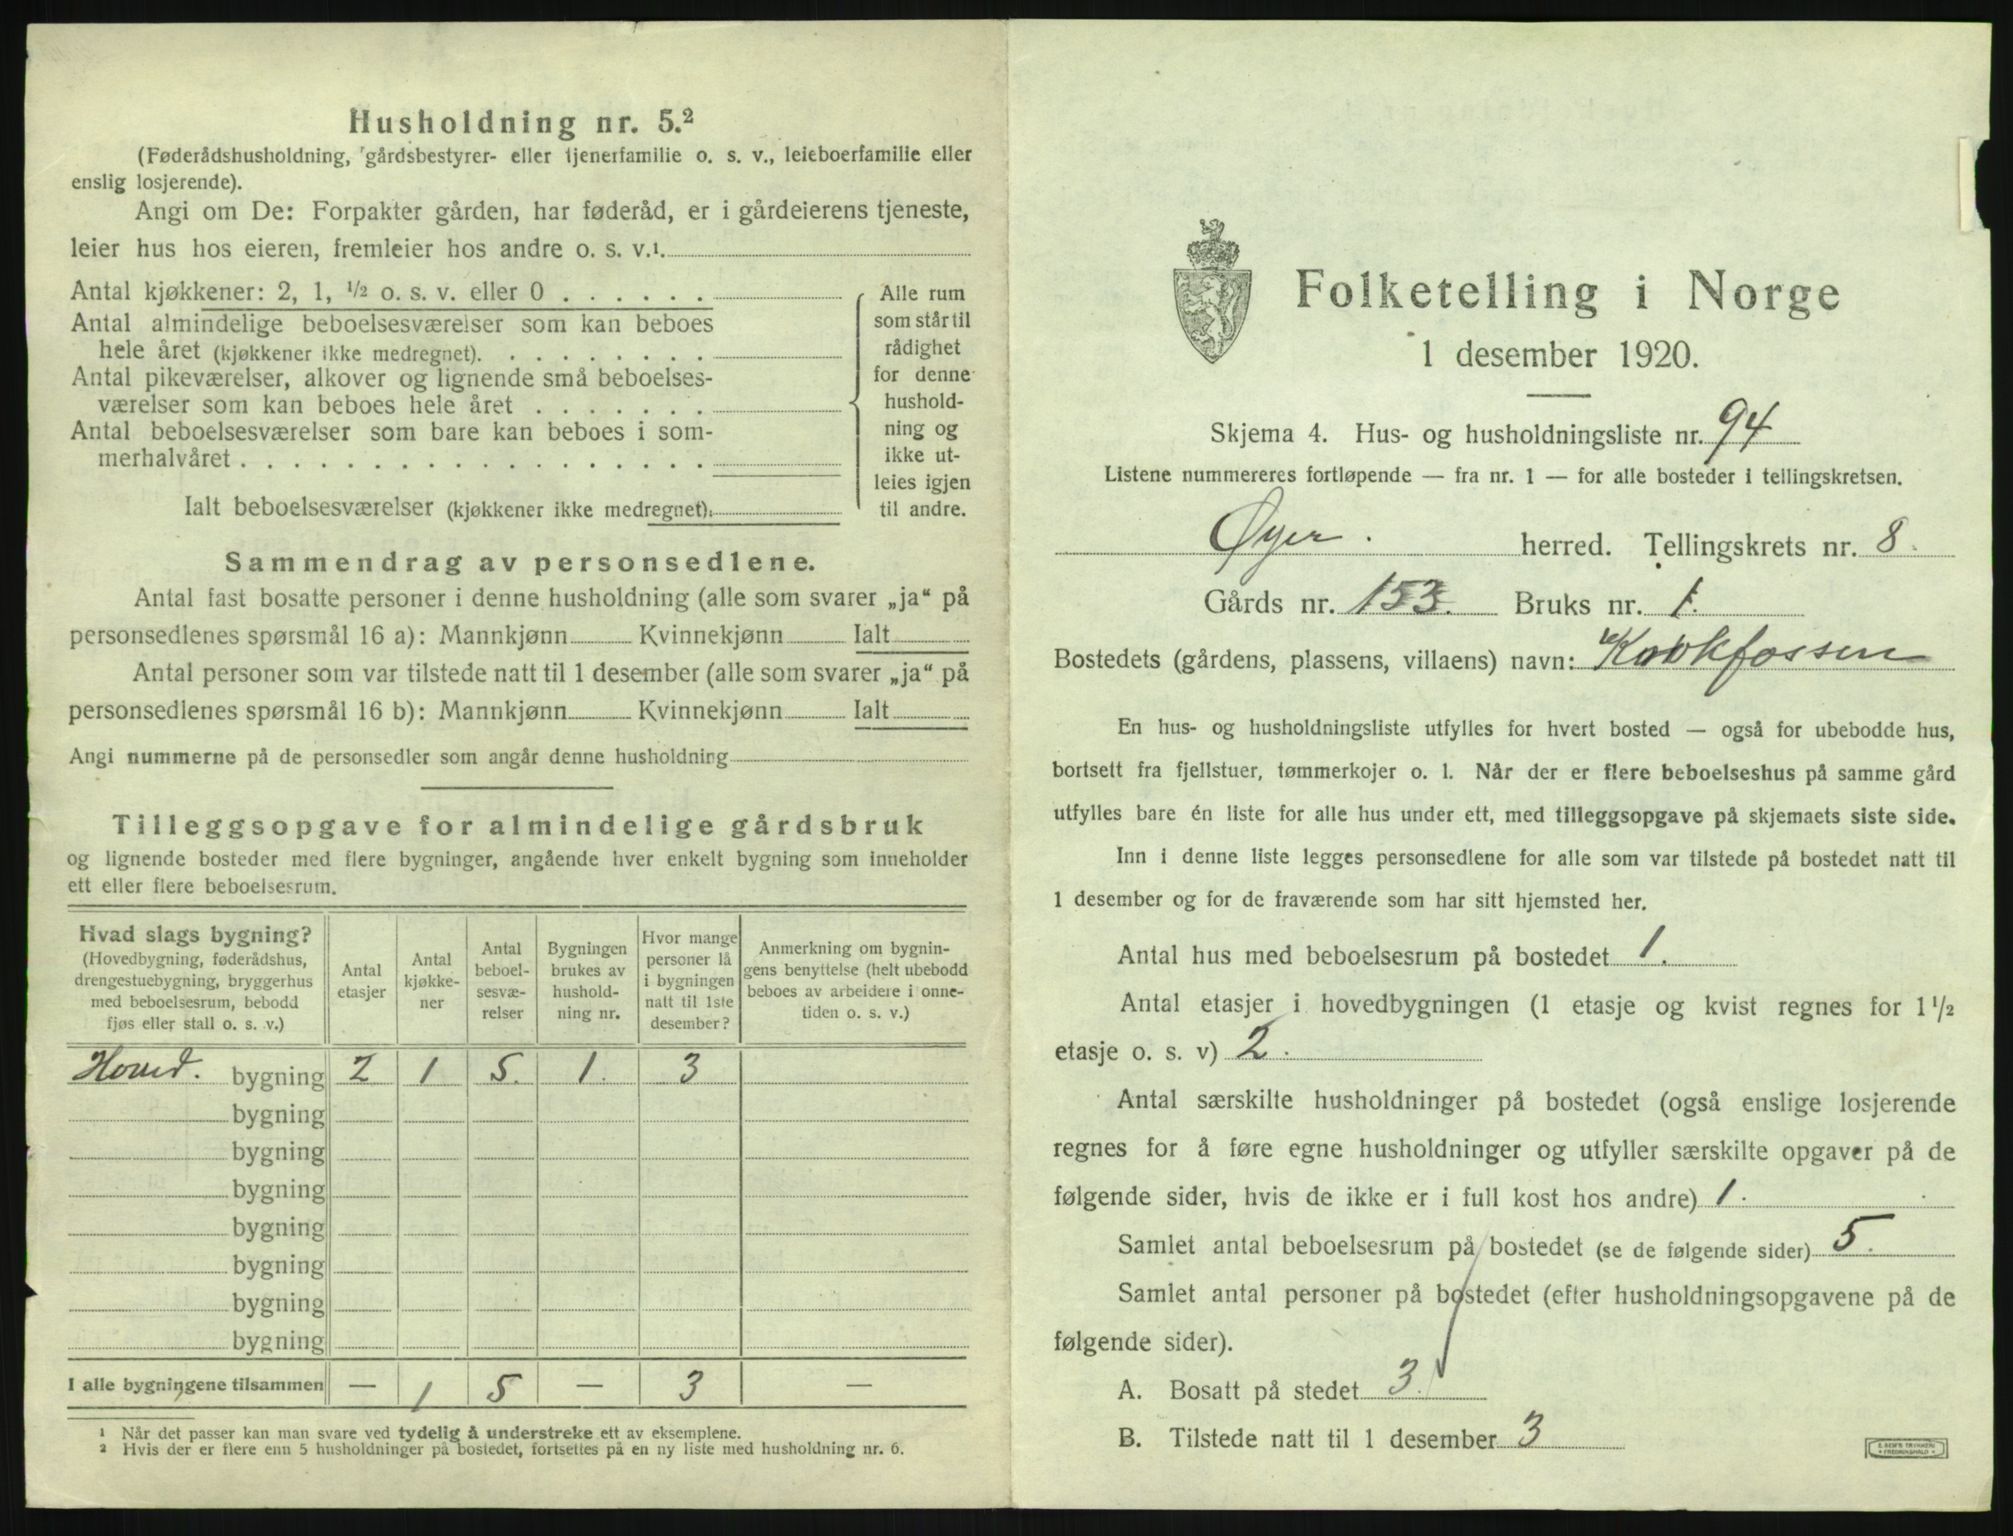 Husholdning nr. 5.²
(Føderådshusholdning, gårdsbestyrer- eller tjenerfamilie o. s. v., leieboerfamilie eller
enslig losjerende).
Angi om De: Forpakter gården, har føderåd, er i gårdeierens tjeneste,
leier hus hos eieren, fremleier hos andre o. s. v.¹
Antal kjøkkener: 2, 1, ½ o. s. v. eller 0 . . . . . .
Antal almindelige beboelsesværelser som kan beboes
hele året (kjøkkener ikke medregnet). . . . . . . . .
Antal pikeværelser, alkover og lignende små beboelses-
værelser som kan beboes hele året . . . . . . .
Antal beboelsesværelser som bare kan beboes i som-
merhalvåret . . . . . . . . . . . . . . . . . .
Ialt beboelsesværelser (kjøkkener ikke medregnet).
Alle rum
som står til
rådighet
for denne
hushold-
ning og
ikke ut-
leies igjen
til andre.
Sammendrag av personsedlene.
Antal fast bosatte personer i denne husholdning (alle som svarer „ja“ på
personsedlenes spørsmål 16 a): Mannkjønn Kvinnekjønn Ialt
Antal personer som var tilstede natt til 1 desember (alle som svarer „ja“ på
personsedlenes spørsmål 16 b): Mannkjønn Kvinnekjønn Ialt
Angi nummerne på de personsedler som angår denne husholdning
Tilleggsopgave for almindelige gårdsbruk
og lignende bosteder med flere bygninger, angående hver enkelt bygning som inneholder
ett eller flere beboelsesrum.
Hvad slags bygning?
(Hovedbygning, føderådshus,
drengestuebygning, bryggerhus
med beboelsesrum, bebodd
fjøs eller stall o. s. v.)
Antal
etasjer
Antal
kjøkke-
ner
Antal
beboel-
sesvæ-
relser
Bygningen
brukes av
hushold-
ning nr.
Hvor mange
personer lå
i bygningen
natt til 1ste
desember?
Anmerkning om bygnin-
gens benyttelse (helt ubebodd
beboes av arbeidere i onne-
tiden o. s. v.)
Hoved. bygning 2 1 5. 1. 3
bygning
bygning
bygning
bygning
bygning
bygning
bygning
I alle bygningene tilsammen — 1 5 — 3 —
¹ Når det passer kan man svare ved tydelig å understreke ett av eksemplene.
² Hvis der er flere enn 5 husholdninger på bostedet, fortsettes på en ny liste med husholdning nr. 6.
Folketelling i Norge
1 desember 1920.
Skjema 4. Hus- og husholdningsliste nr. 94
Listene nummereres fortløpende — fra nr. 1 — for alle bosteder i tellingskretsen.
Øyer . herred. Tellingskrets nr. 8.
Gårds nr. 153. Bruks nr. 1.
Bostedets (gårdens, plassens, villaens) navn:
En hus- og husholdningsliste utfylles for hvert bosted — også for ubebodde hus,
bortsett fra fjellstuer, tømmerkojer o. l. Når der er flere beboelseshus på samme gård
utfylles bare én liste for alle hus under ett, med tilleggsopgave på skjemaets siste side.
Inn i denne liste legges personsedlene for alle som var tilstede på bostedet natt til
1 desember og for de fraværende som har sitt hjemsted her.
Antal hus med beboelsesrum på bostedet 1.
Antal etasjer i hovedbygningen (1 etasje og kvist regnes for 1½
etasje o. s. v) 2.
Antal særskilte husholdninger på bostedet (også enslige losjerende
regnes for å føre egne husholdninger og utfyller særskilte opgaver på de
følgende sider, hvis de ikke er i full kost hos andre) 1.
Samlet antal beboelsesrum på bostedet (se de følgende sider) 5.
Samlet antal personer på bostedet (efter husholdningsopgavene på de
følgende sider).
A. Bosatt på stedet 3.
B. Tilstede natt til 1 desember 3